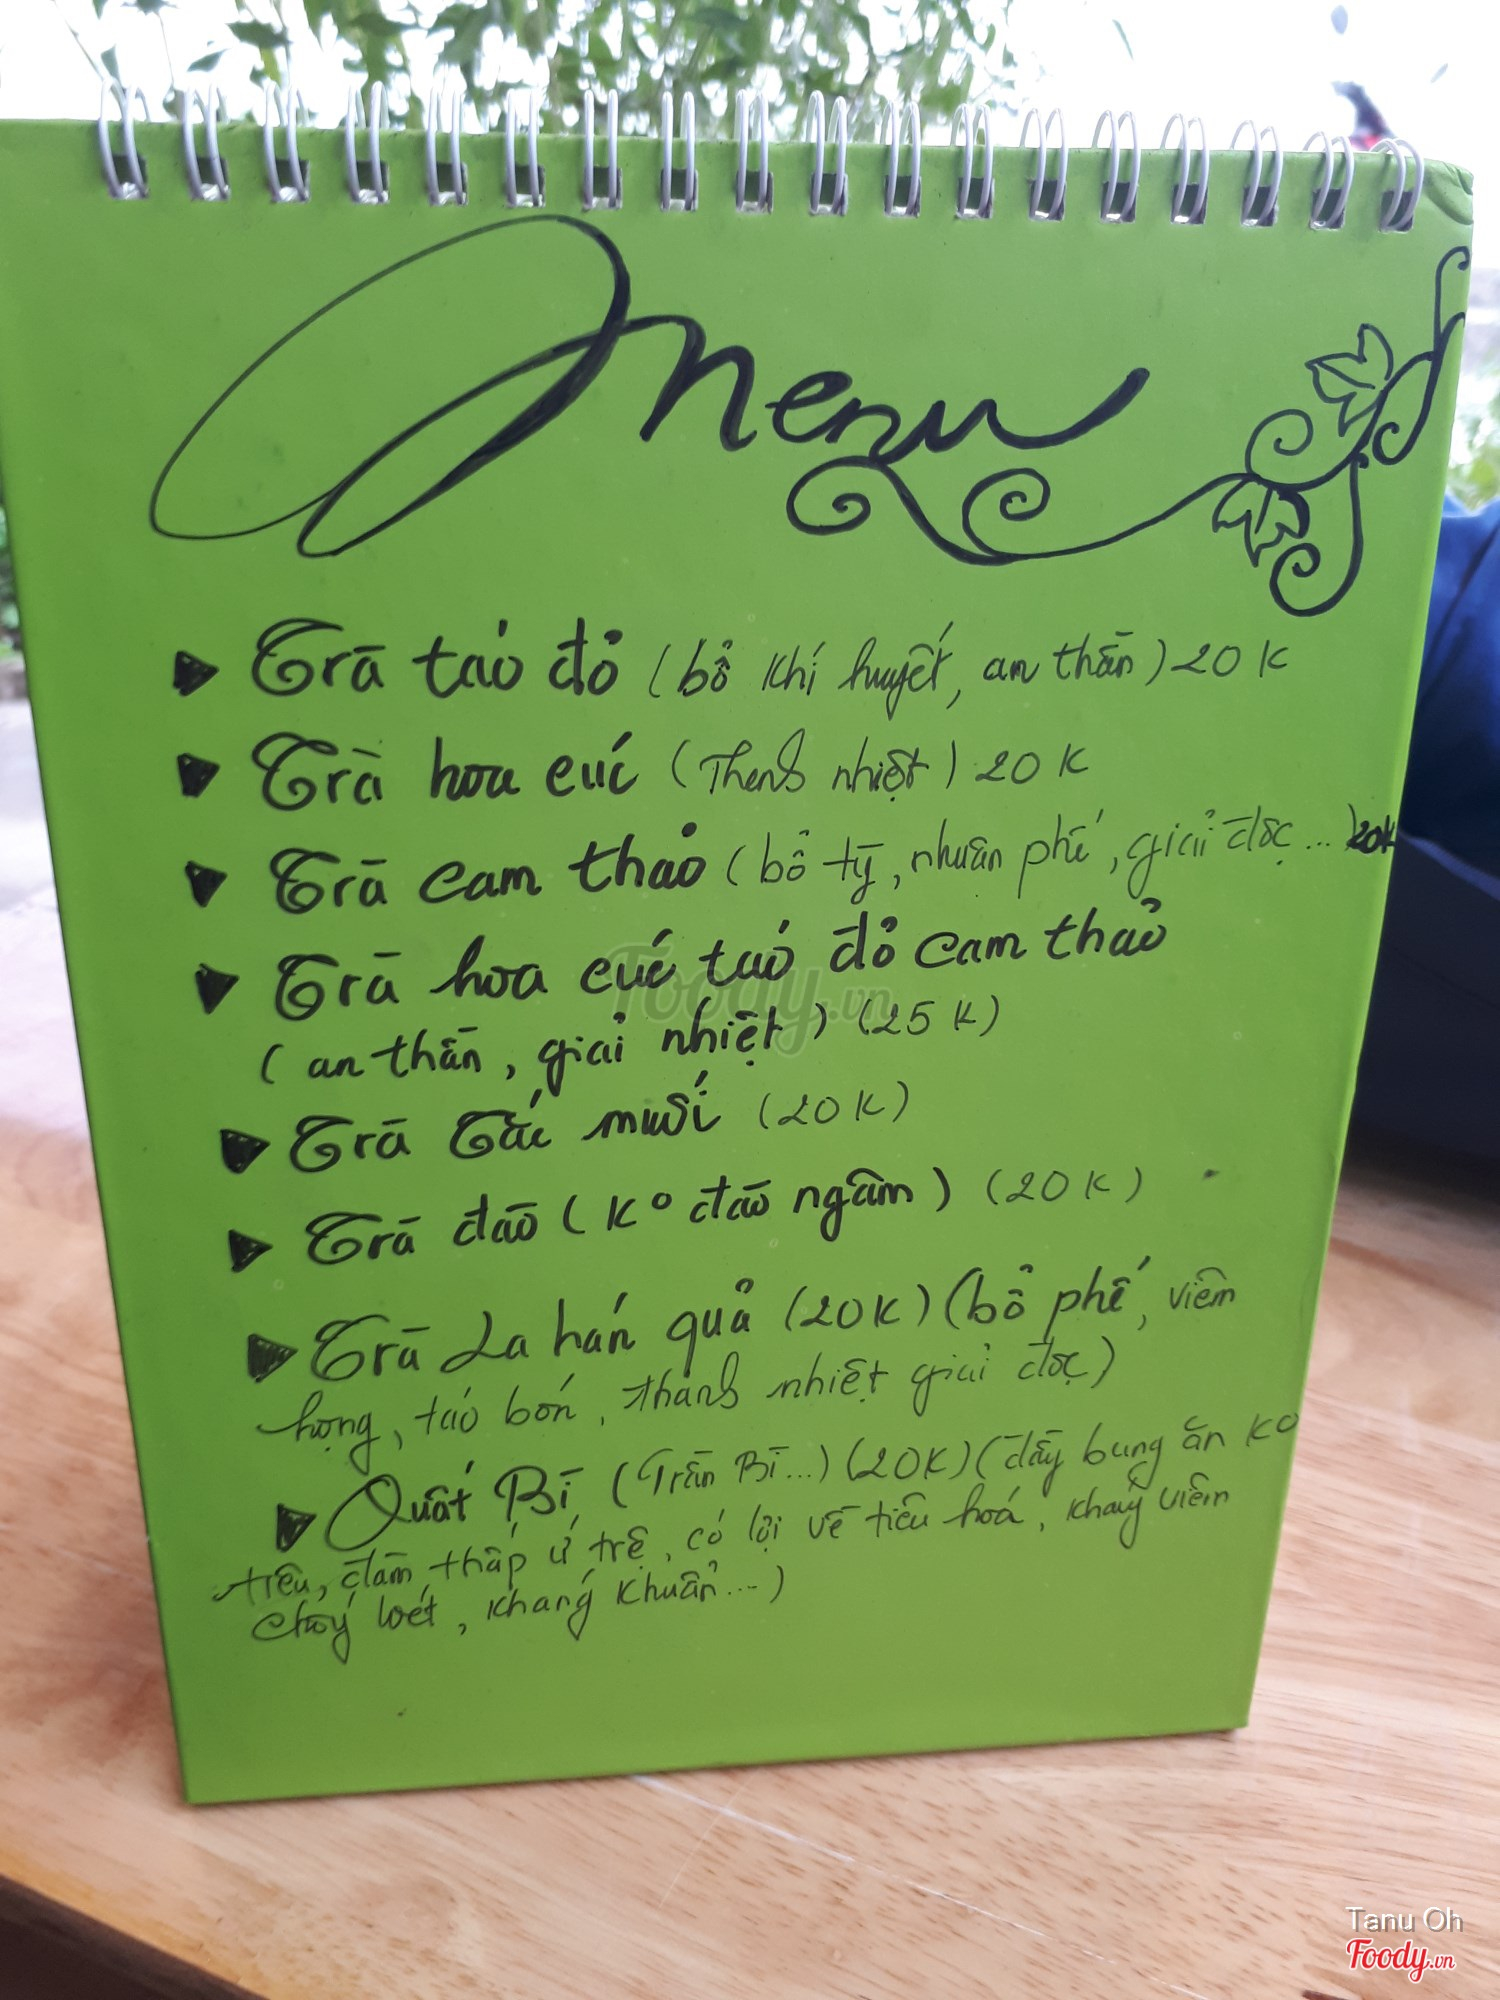 Menu
Trà táo đỏ (bổ khí huyết, an thần) 20K
Trà hoa cúc (Thanh nhiệt) 20K
Trà cam thảo (bổ tỳ, nhuận phế, giải độc... 20K
Trà hoa cúc táo đỏ cam thảo
(an thần, giải nhiệt) (25K)
Trà Tắc muối (20K)
Trà đào (Ko đào ngâm) (20K)
Trà La hán quả (20K) (bổ phế, viêm
họng, táo bón, thanh nhiệt giải độc)
Quất Bì (Trần Bì...) (20K) (đầy bụng ăn ko
tiêu, đàm thấp ứ trệ, có lợi về tiêu hoá, kháng viêm
chống loét, kháng khuẩn...)
Foody.vn
Tanu Oh
Foody.vn